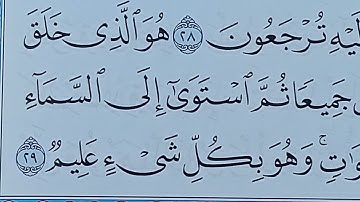 لَيْهِ تُرْجَعُونَ ٢٨ هُوَ ٱلَّذِى خَلَقَ
جَمِيعًا ثُمَّ ٱسْتَوَىٰٓ إِلَى ٱلسَّمَآءِ
وَٰتٍ ۚ وَهُوَ بِكُلِّ شَىْءٍ عَلِيمٌ ٢٩